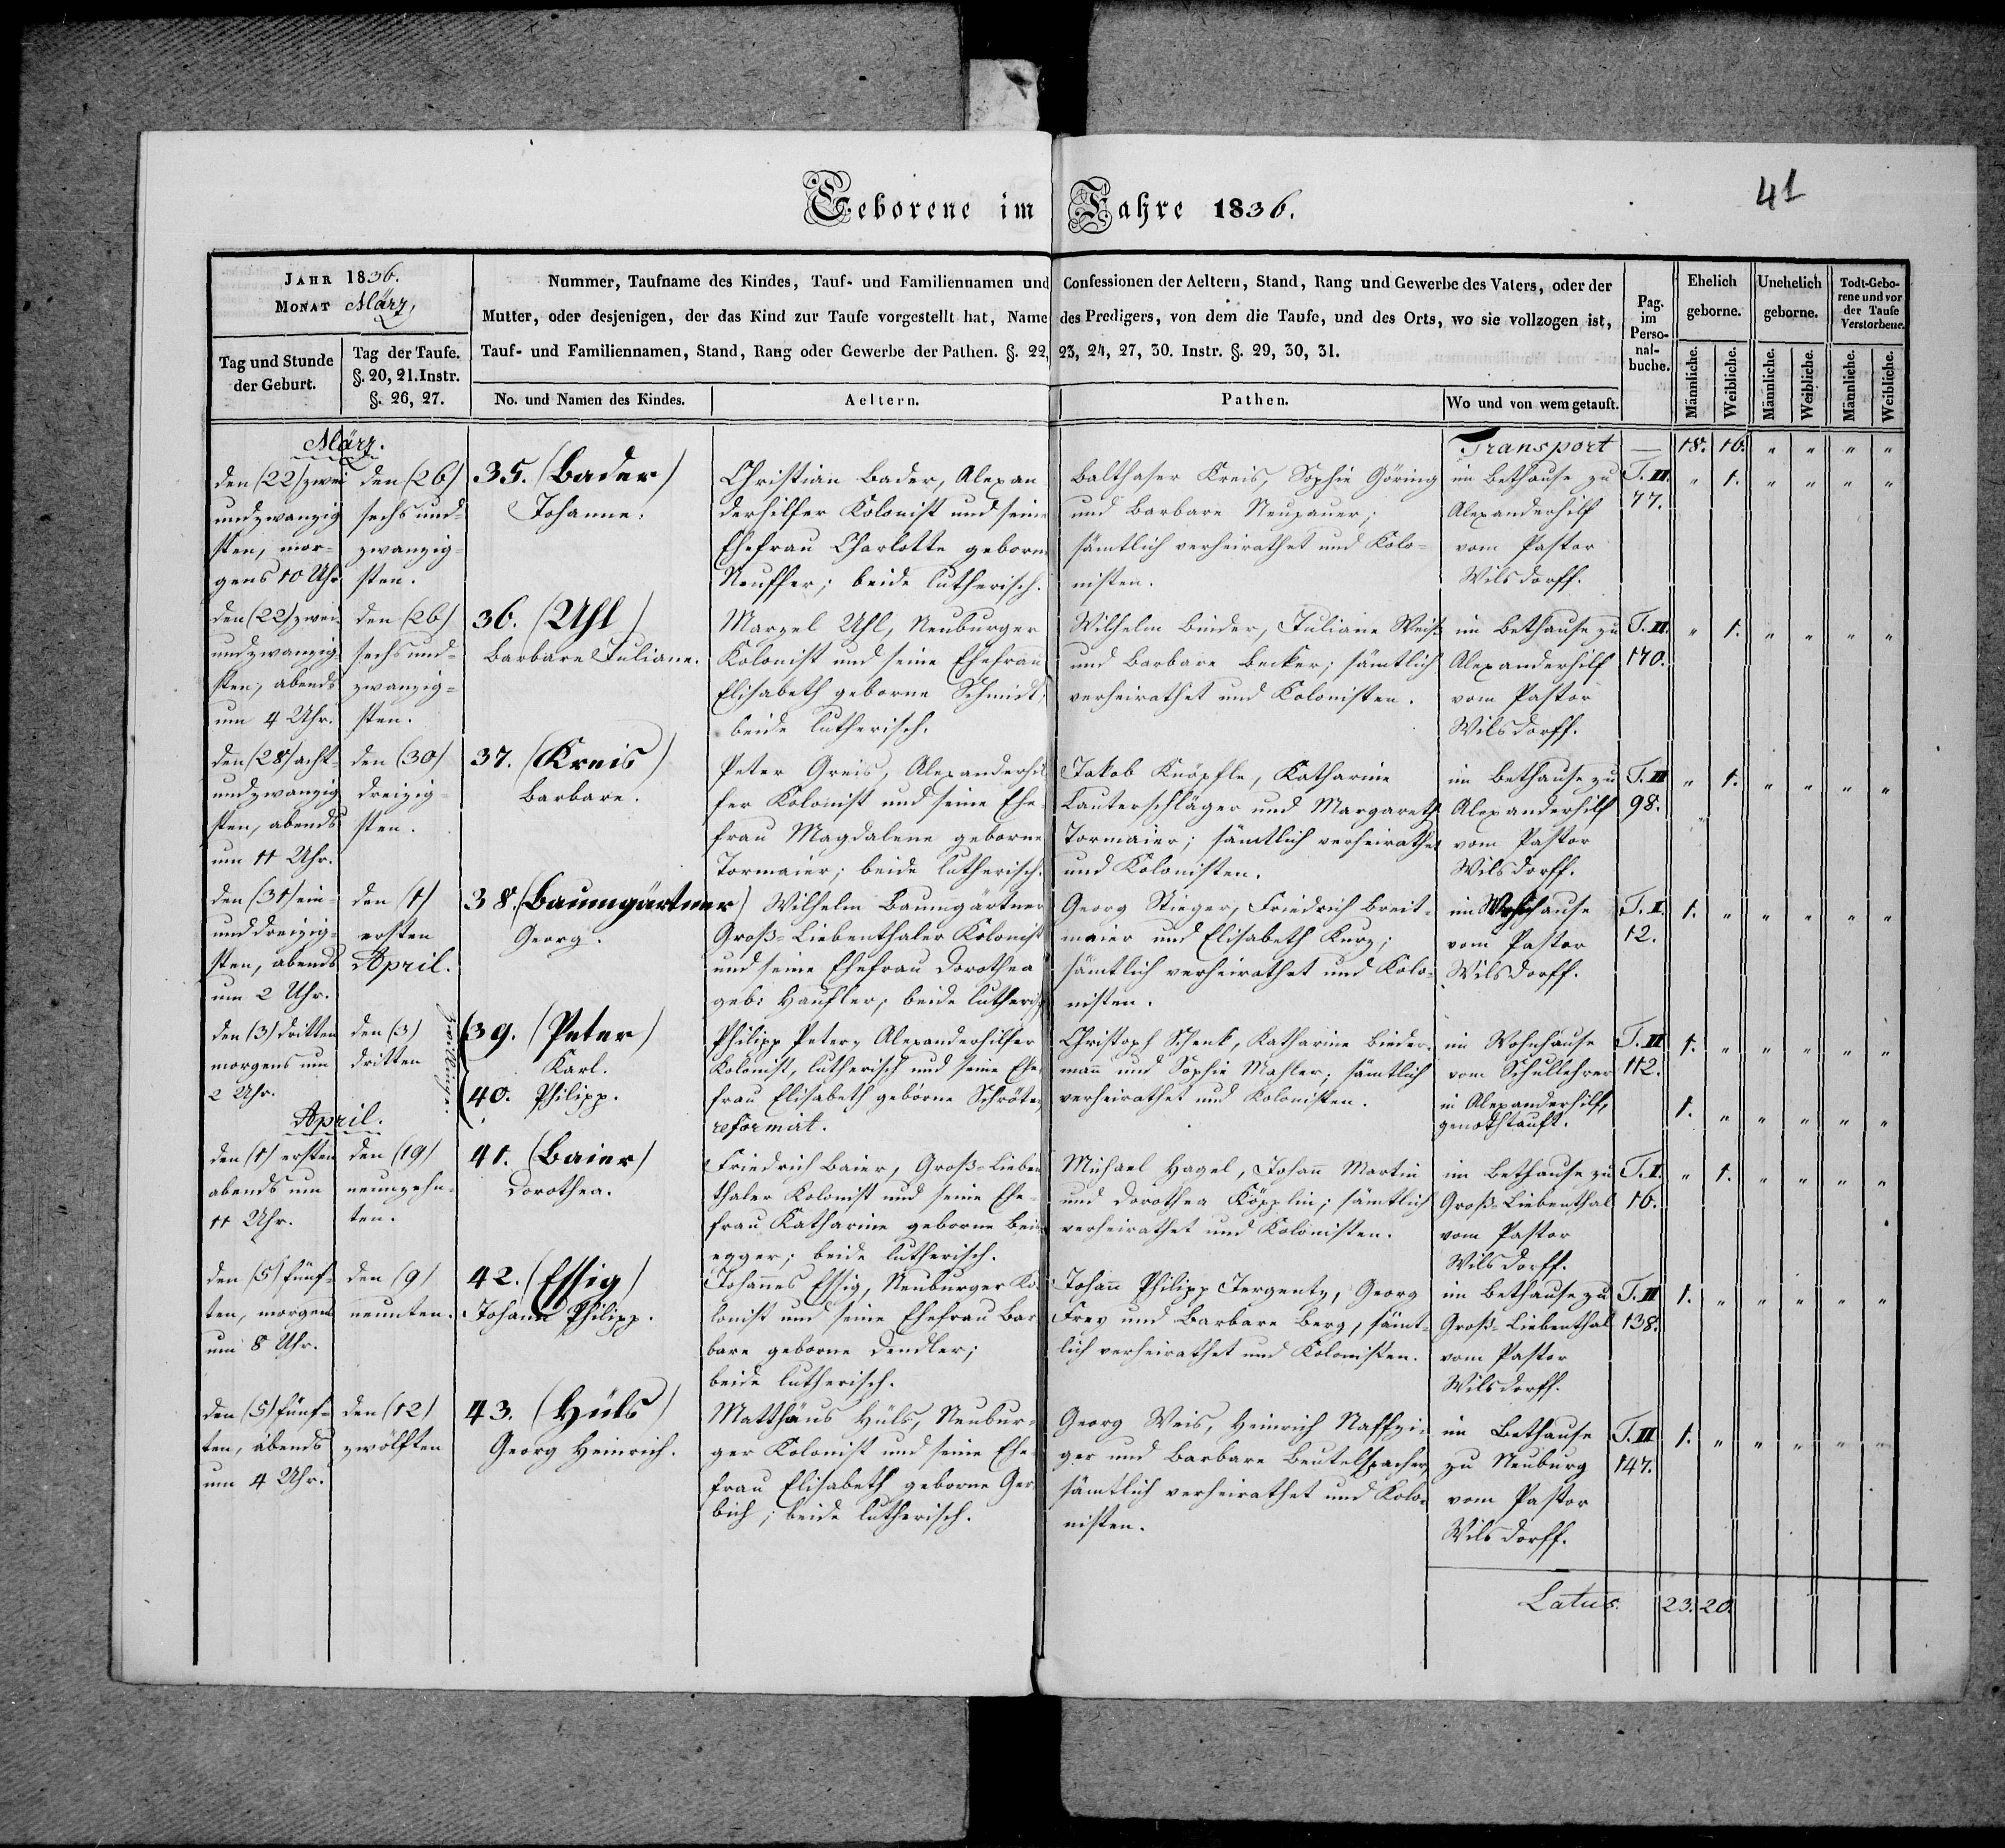 Geborene im Jahre 1836.
41
JAHR 1836.
MONAT März,
Nummer, Taufname des Kindes, Tauf- und Familiennamen und Confessionen der Aeltern, Stand, Rang und Gewerbe des Vaters, oder der
Mutter, oder desjenigen, der das Kind zur Taufe vorgestellt hat, Name des Predigers, von dem die Taufe, und des Orts, wo sie vollzogen ist,
Tauf- und Familiennamen, Stand, Rang oder Gewerbe der Pathen. §. 22, 23, 24, 27, 30. Instr. §. 29, 30, 31.
Tag und Stunde
der Geburt.
Tag der Taufe.
§. 20, 21. Instr.
§. 26, 27.
No. und Namen des Kindes.
Aeltern.
Pathen.
Wo und von wem getauft.
Pag.
im
Perso-
nal-
buche.
Ehelich
geborne.
Unehelich
geborne.
Todt-Gebo-
rene und vor
der Taufe
Verstorbene.
Männliche.
Weibliche.
Männliche.
Weibliche.
Männliche.
Weibliche.
März.
Transport — 18. 16. " " " "
den (22) zwei
undzwanzig
sten, mor-
gens 10 Uhr
den (26)
sechs und-
zwanzig-
sten.
35. (Bader)
Johanne.
Christian Bader, Alexan
derhilfer Kolonist und seine
Ehefrau Charlotte geborne
Neuffer; beide lutherisch.
Balthaser Kreis, Sophie Göring
und Barbare Neupauer;
sämtlich verheirathet und Kolo-
nisten.
im Bethause zu
Alexanderhilf
vom Pastor
Wilsdorff.
T. II.
77.
" 1. " " " "
den (22) zwei-
undzwanzig-
sten, abends
um 4 Uhr.
den (26)
sechs und-
zwanzig-
sten.
36. (Uhl)
Barbare Juliane.
Marzel Uhl, Neuburger
Kolonist und seine Ehefrau
Elisabeth geborne Schmidt;
beide lutherisch.
Wilhelm Binder, Juliane Weiß
und Barbare Becker; sämtlich
verheirathet und Kolonisten.
im Bethause zu
Alexanderhilf
vom Pastor
Wilsdorff.
T. II.
170.
" 1. " " " "
den (28) acht-
undzwanzig
sten, abends
um 11 Uhr.
den (30)
dreizig-
sten.
37. (Kreis)
Barbare.
Peter Greis, Alexanderhil
fer Kolonist und seine Ehe-
frau Magdalene geborne
Tormaier; beide lutherisch.
Jakob Knöpfle, Katharine
Lauterschläger und Margareth
Tormaier; sämtlich verheirathet
und Kolonisten.
im Bethause zu
Alexanderhilf
vom Pastor
Wilsdorff.
T. II
98.
" 1. " " " "
den (31) ein-
und dreizig-
sten, abends
um 2 Uhr.
den (1)
ersten
April.
38. (Baumgärtner)
Georg.
Wilhelm Baumgärtner
Groß-Liebenthaler Kolonist
und seine Ehefrau Dorothea
geb: Haußler; beide lutherisch
Georg Stieger, Friedrich Breit-
maier und Elisabeth Kurz;
sämtlich verheirathet und Kolo-
nisten.
im Wohnhause
vom Pastor
Wilsdorff.
T. I.
12.
1. " " " " "
den (3) dritten
morgens um
2 Uhr.
den (3)
dritten
Zwillinge.
39. (Peter)
Karl.
40. Philipp.
Philipp Peter, Alexanderhilfer
Kolonist, lutherisch und seine Ehe-
frau Elisabeth geborne Schröter,
reformirt.
Christoph Schenk, Katharine Bieder-
mañ und Sophie Mahler; sämtlich
verheirathet und Kolonisten.
im Wohnhause
vom Schullehrer
in Alexanderhilf,
genothtauft.
T. II
112.
1. " " " " "
1. " " " " "
April.
den (1) ersten
abends um
11 Uhr.
den (19)
neunzehn-
ten.
41. (Baier)
Dorothea.
Friedrich Baier, Groß-Lieben
thaler Kolonist und seine Ehe-
frau Katharine geborne Bein
egger; beide lutherisch.
Michael Hagel, Johañ Martin
und Dorothea Köpplin; sämtlich
verheirathet und Kolonisten.
im Bethause zu
Groß-Liebenthal
vom Pastor
Wilsdorff.
T. I.
16.
" 1. " " " "
den (5) fünf-
ten, morgens
um 8 Uhr.
den (9)
neunten.
42. (Essig)
Johann Philipp.
Johañes Essig, Neuburger Ko-
lonist und seine Ehefrau Bar-
bare geborne Dendler;
beide lutherisch.
Johañ Philipp Jergentz, Georg
Frey und Barbare Berg, sämt-
lich verheirathet und Kolonisten.
im Bethause zu
Groß-Liebenthal
vom Pastor
Wilsdorff.
T. II
138.
1. " " " " "
den (5) fünf-
ten, abends
um 4 Uhr.
den (12)
zwölften
43. (Hüls)
Georg Heinrich.
Matthäus Hüls, Neubur-
ger Kolonist und seine Ehe-
frau Elisabeth geborne Ger
bich; beide lutherisch.
Georg Weis, Heinrich Naffzi-
ger und Barbare Beutelspacher,
sämtlich verheirathet und Kolo-
nisten.
im Bethause
zu Neuburg
vom Pastor
Wilsdorff.
T. II
147.
1. " " " " "
Latus. 23. 20.